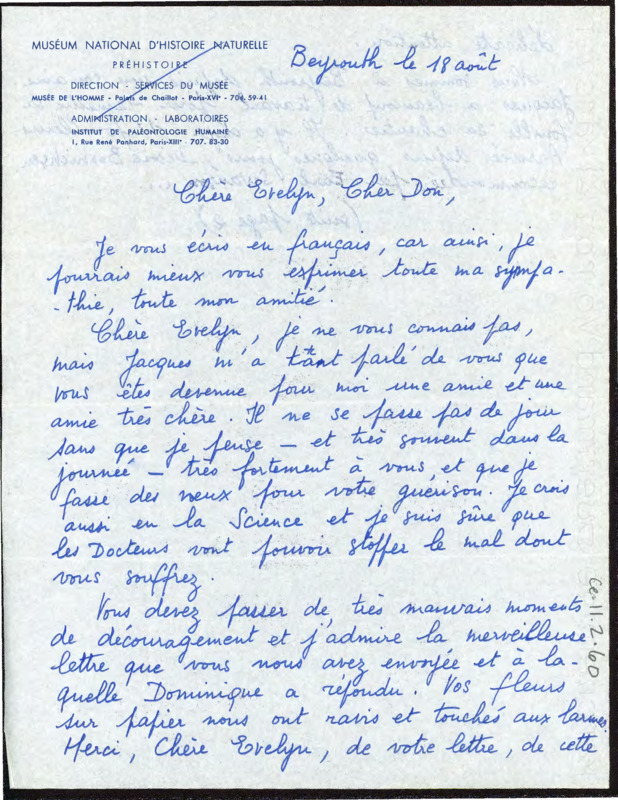 MUSÉUM NATIONAL D'HISTOIRE NATURELLE
PRÉHISTOIRE
DIRECTION - SERVICES DU MUSÉE
MUSÉE DE L'HOMME - Palais de Chaillot - Paris-XVIᵉ - 704. 59-41
ADMINISTRATION - LABORATOIRES
INSTITUT DE PALÉONTOLOGIE HUMAINE
1, Rue René Panhard, Paris-XIIIᵉ - 707. 83-30
Beyrouth le 18 août
Chère Evelyn, Cher Don,
Je vous écris en français, car ainsi, je
pourrais mieux vous exprimer toute ma sympa-
-thie, toute mon amitié.
Chère Evelyn, je ne vous connais pas,
mais Jacques m'a tant parlé de vous que
vous êtes devenue pour moi une amie et une
amie très chère. Il ne se passe pas de jour
sans que je pense - et très souvent dans la
journée - très fortement à vous, et que je
fasse des vœux pour votre guérison. Je crois
aussi en la Science et je suis sûre que
les Docteurs vont pouvoir stopper le mal dont
vous souffrez.
Vous devez passer de très mauvais moments
de découragement et j'admire la merveilleuse
lettre que vous nous avez envoyée et à la-
quelle Dominique a répondu. Vos fleurs
sur papier nous ont ravis et touchés aux larmes.
Merci, Chère Evelyn, de votre lettre, de cette
Ce.11.2.60